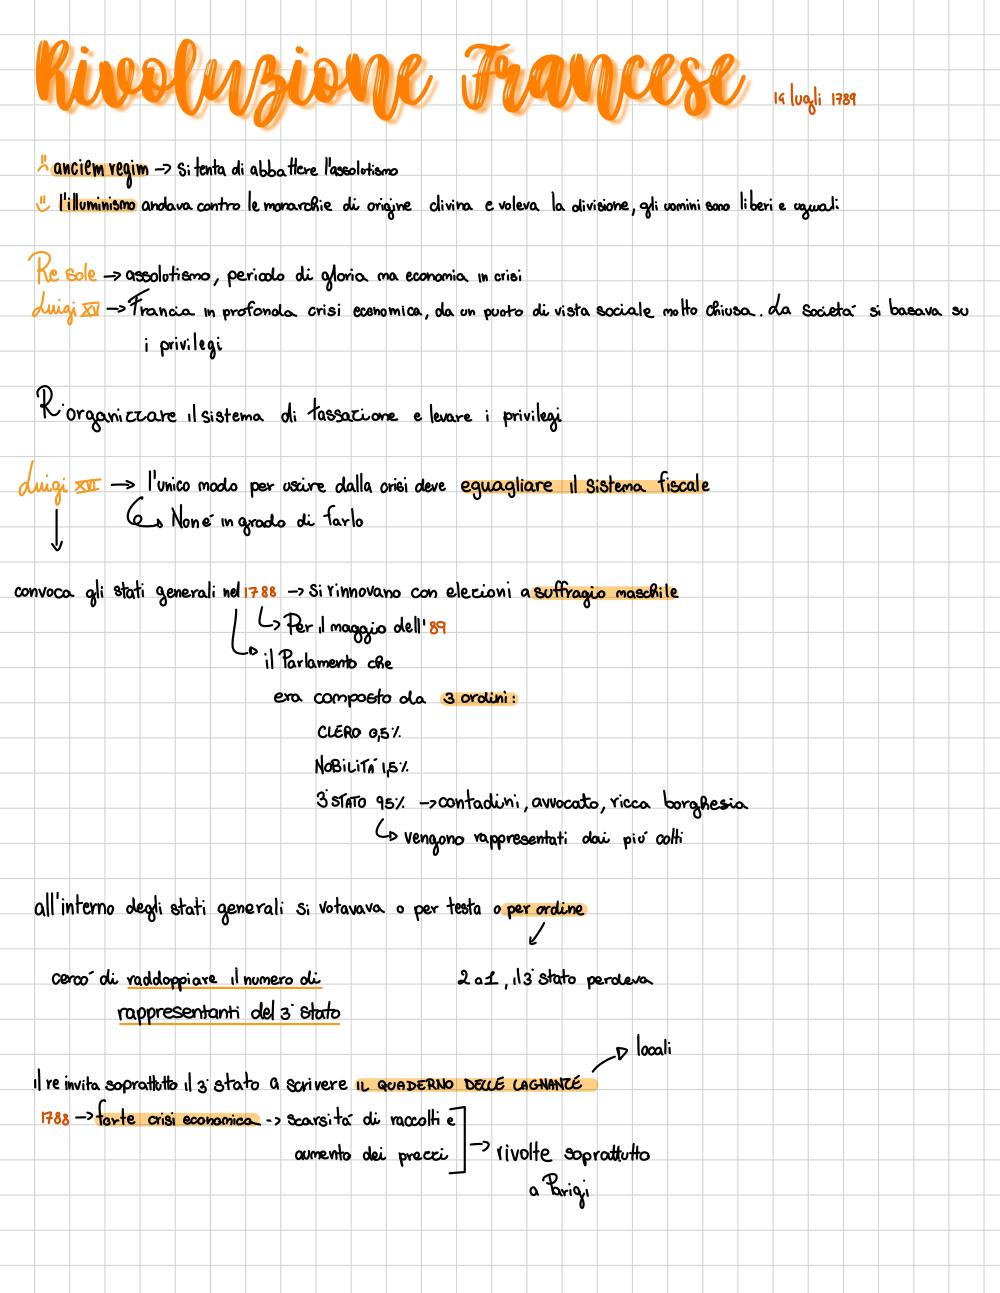 Rivoluzione Francese 14 lugli 1789
anciem regim → si tenta di abbattere l'assolutismo
l'illuminismo andava contro le monarchie di origine divina e voleva la divisione, gli uomini sono liberi e uguali
Re sole → assolutismo, periodo di gloria ma economia in crisi
Luigi XV → Francia in profonda crisi economica, da un puoto di vista sociale molto chiusa. La società si basava su
i privilegi
Riorganizzare il sistema di tassazione e levare i privilegi
Luigi XVI → l'unico modo per uscire dalla crisi deve eguagliare il sistema fiscale
Non é in grado di farlo
convoca gli stati generali nel 1788 → si rinnovano con elezioni a suffragio maschile
Per il maggio dell'89
il Parlamento che
era composto da 3 ordini:
CLERO 0,5%
NOBILITÁ 1,5%
3° STATO 95% → contadini, avvocato, ricca borghesia
vengono rappresentati dai piú colti
all'interno degli stati generali si votavava o per testa o per ordine
cercó di raddoppiare il numero di 2 a 1, il 3° stato perdeva
rappresentanti del 3° stato
locali
il re invita soprattutto il 3° stato a scrivere IL QUADERNO DELLE LAGNANZE
1788 → forte crisi economica → scarsitá di raccolti e
aumento dei prezzi → rivolte soprattutto
a Parigi